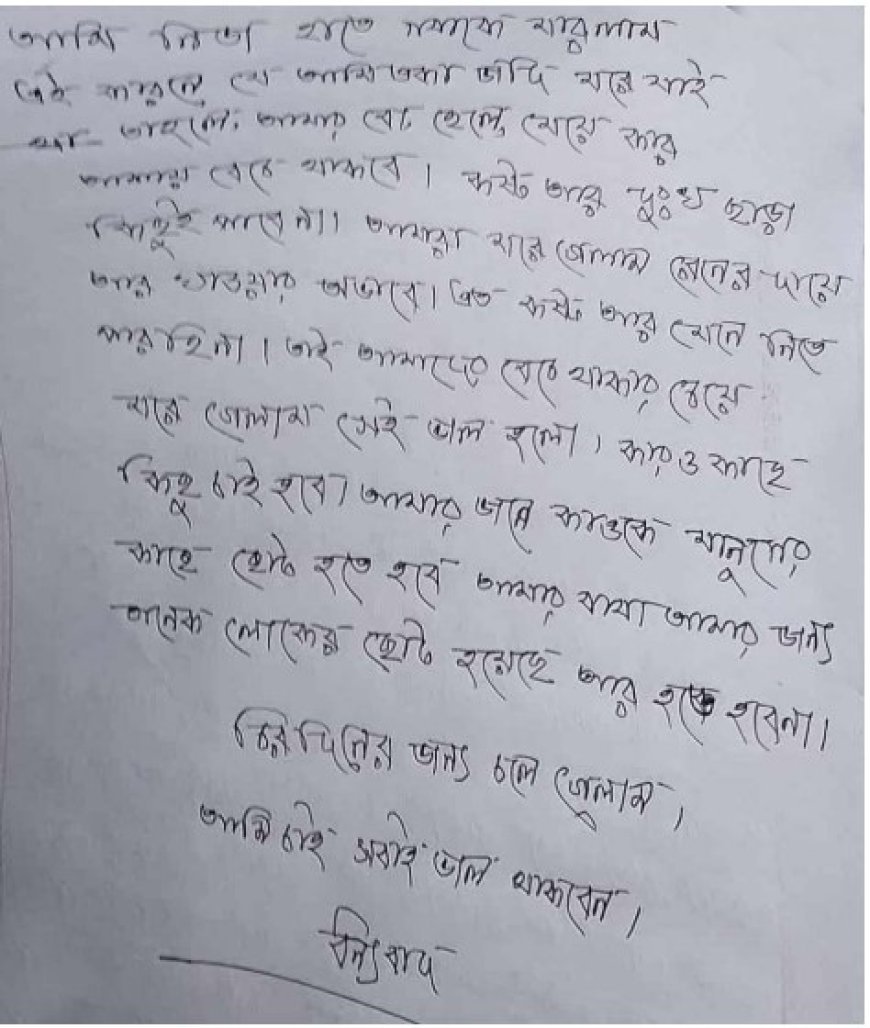 আমি নিজ হাতে সবাকে মারলাম
এই কারনে যে আমি একা জদি মরে যাই
তাহলে, আমার বৌ ছেলে, মেয়ে কার
আসায় বেচে থাকবে। কষ্ট আর দুঃখ ছাড়া
কিছুই পাবেনা। আমরা মরে গেলাম রিনের দায়ে
আর খাওয়ার অভাবে। এত কষ্ট আর মেনে নিতে
পারছিনা। তাই আমাদের বেচে থাকার চেয়ে
মরে গেলাম সেই ভাল হলো। কারও কাছে
কিছু চাই হবেনা আমার জন্যে কাওকে মানুসের
কাছে ছোট হতে হবে আমার বাবা আমার জন্য
অনেক লোকের ছোট হয়েছে আর হতে হবেনা।
চিরদিনের জন্য চলে গেলাম।
আমি চাই সবাই ভাল থাকবেন।
ধন্যবাদ